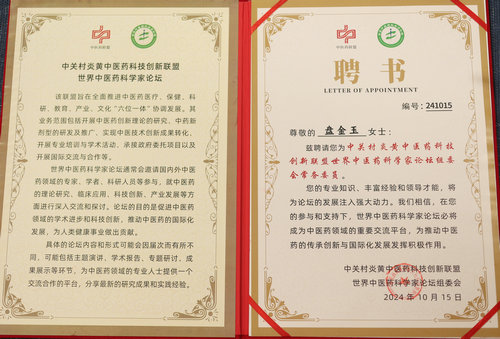 中医药联盟
中关村炎黄中医药科技创新联盟
世界中医药科学家论坛
该联盟旨在全面推进中医药医疗、保健、科
研、教育、产业、文化“六位一体”协调发展。其
业务范围包括开展中医药创新理论的研究、中药新
剂型的研发及推广、实现中医技术创新成果转化、
开展专业培训与学术活动，承接政府委托项目以及
开展国际交流与合作等。
世界中医药科学家论坛通常会邀请国内外中医
药领域的专家、学者、科研人员等参与，就中医药
的理论研究、临床应用、科技创新、产业发展等方
面进行深入交流和探讨。论坛的目的是促进中医药
领域的学术进步和科技创新，推动中医药的国际化
发展，为人类健康事业做出贡献。
具体的论坛内容和形式可能会因届次而有所不
同，可能包括主题演讲、学术报告、专题研讨、成
果展示等环节，为中医药领域的专业人士提供一个
交流合作的平台，分享最新的研究成果和实践经验。
中医药联盟
聘书
LETTER OF APPOINTMENT
编号：241015
尊敬的 盘金玉 女士：
兹聘请您为中关村炎黄中医药科技
创新联盟世界中医药科学家论坛组委
会常务委员。
您的专业知识、丰富经验和领导才能，将
为论坛的发展注入强大动力。我们相信，在您
的参与和支持下，世界中医药科学家论坛必将
成为中医药领域的重要交流平台，为推动中医
药的传承创新与国际化发展发挥积极作用。
中关村炎黄中医药科技创新联盟
世界中医药科学家论坛组委会
2024 年 10 月 15 日